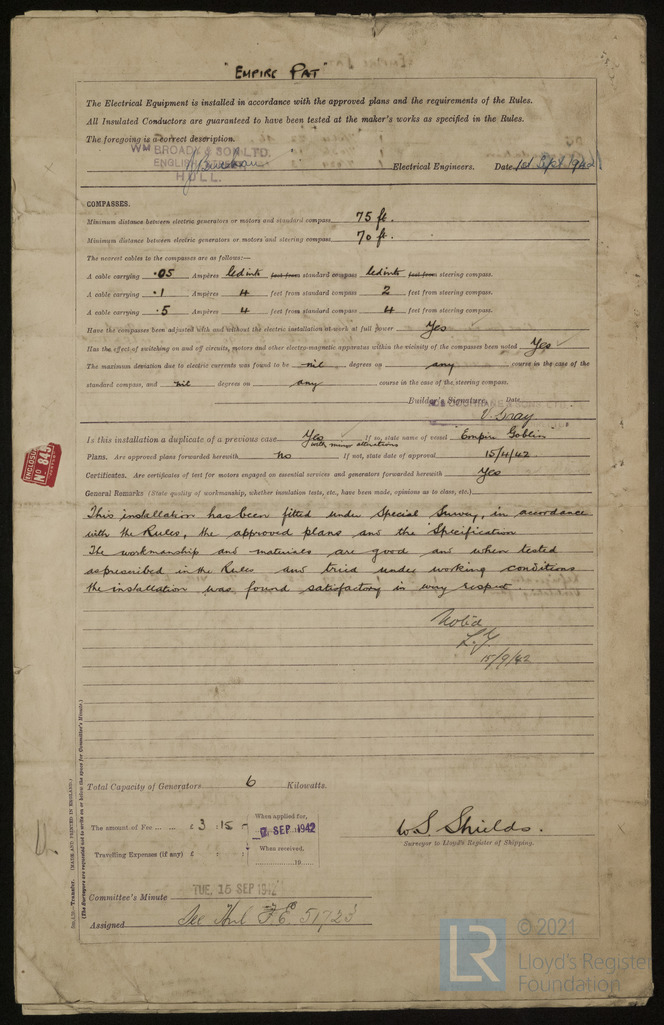 "EMPIRE PAT"
The Electrical Equipment is installed in accordance with the approved plans and the requirements of the Rules.
All Insulated Conductors are guaranteed to have been tested at the maker's works as specified in the Rules.
The foregoing is a correct description.
WM BROADY & SON LTD.
HULL.
Electrical Engineers. Date 1st Sept 1942
COMPASSES.
Minimum distance between electric generators or motors and standard compass 75 ft.
Minimum distance between electric generators or motors and steering compass 70 ft.
The nearest cables to the compasses are as follows:—
A cable carrying .05 Ampères led into feet from standard compass led into feet from steering compass.
A cable carrying .1 Ampères 4 feet from standard compass 2 feet from steering compass.
A cable carrying .5 Ampères 4 feet from standard compass 4 feet from steering compass.
Have the compasses been adjusted with and without the electric installation at work at full power Yes
Has the effect of switching on and off circuits, motors and other electro-magnetic apparatus within the vicinity of the compasses been noted Yes
The maximum deviation due to electric currents was found to be nil degrees on any course in the case of the
standard compass, and nil degrees on any course in the case of the steering compass.
Builder's Signature. Date
V. Gray
Is this installation a duplicate of a previous case Yes If so, state name of vessel "Empire Goblin"
with minor alterations
Plans. Are approved plans forwarded herewith no If not, state date of approval 15/4/42
Certificates. Are certificates of test for motors engaged on essential services and generators forwarded herewith Yes
General Remarks (State quality of workmanship, whether insulation tests, etc., have been made, opinions as to class, etc.)
This installation has been fitted under Special Survey, in accordance
with the Rules, the approved plans and the Specification
The workmanship and materials are good and when tested
as prescribed in the Rules and tried under working conditions
the installation was found satisfactory in every respect.
Noted
15/9/42
Total Capacity of Generators 6 Kilowatts.
The amount of Fee ... ... £ 3 : 15 : - When applied for, SEP 1942
Travelling Expenses (if any) £ : : When received, 19
W S Shields.
Surveyor to Lloyd's Register of Shipping.
Committee's Minute TUE. 15 SEP 1942
Assigned See Hul F.E. 51723
5m.4.38—Transfer. (MADE AND PRINTED IN ENGLAND.)
(The Surveyors are requested not to write on or below the space for Committee's Minute.)
ENCLOSURE
No 845
LR
© 2021
Lloyd's Register
Foundation